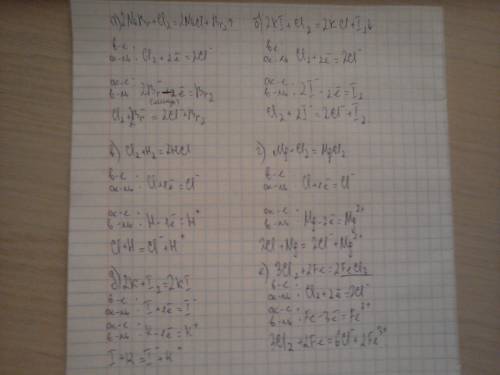 а) 2NaBr + Cl₂ = 2NaCl + Br₂↑
в-е
ок-ль : Cl₂ + 2ē = 2Cl⁻
ок-е
в-ль : 2Br⁻ - 2ē = Br₂
(минус)
Cl₂ + 2Br⁻ = 2Cl⁻ + Br₂
б) 2KI + Cl₂ = 2KCl + I₂↓
в-е
ок-ль : Cl₂ + 2ē = 2Cl⁻
ок-е
в-ль : 2I⁻ - 2ē = I₂
Cl₂ + 2I⁻ = 2Cl⁻ + I₂
в) Cl₂ + H₂ = 2HCl
в-е
ок-ль : Cl + 1ē = Cl⁻
ок-е
в-ль : H - 1ē = H⁺
Cl + H = Cl⁻ + H⁺
г) Mg + Cl₂ = MgCl₂
в-е
ок-ль : Cl + 1ē = Cl⁻
ок-е
в-ль : Mg - 2ē = Mg²⁺
2Cl + Mg = 2Cl⁻ + Mg²⁺
д) 2K + I₂ = 2KI
в-е
ок-ль : I + 1ē = I⁻
ок-е
в-ль : K - 1ē = K⁺
I + K = I⁻ + K⁺
е) 3Cl₂ + 2Fe = 2FeCl₃
в-е
ок-ль : Cl₂ + 2ē = 2Cl⁻
ок-е
в-ль : Fe - 3ē = Fe³⁺
3Cl₂ + 2Fe = 6Cl⁻ + 2Fe³⁺